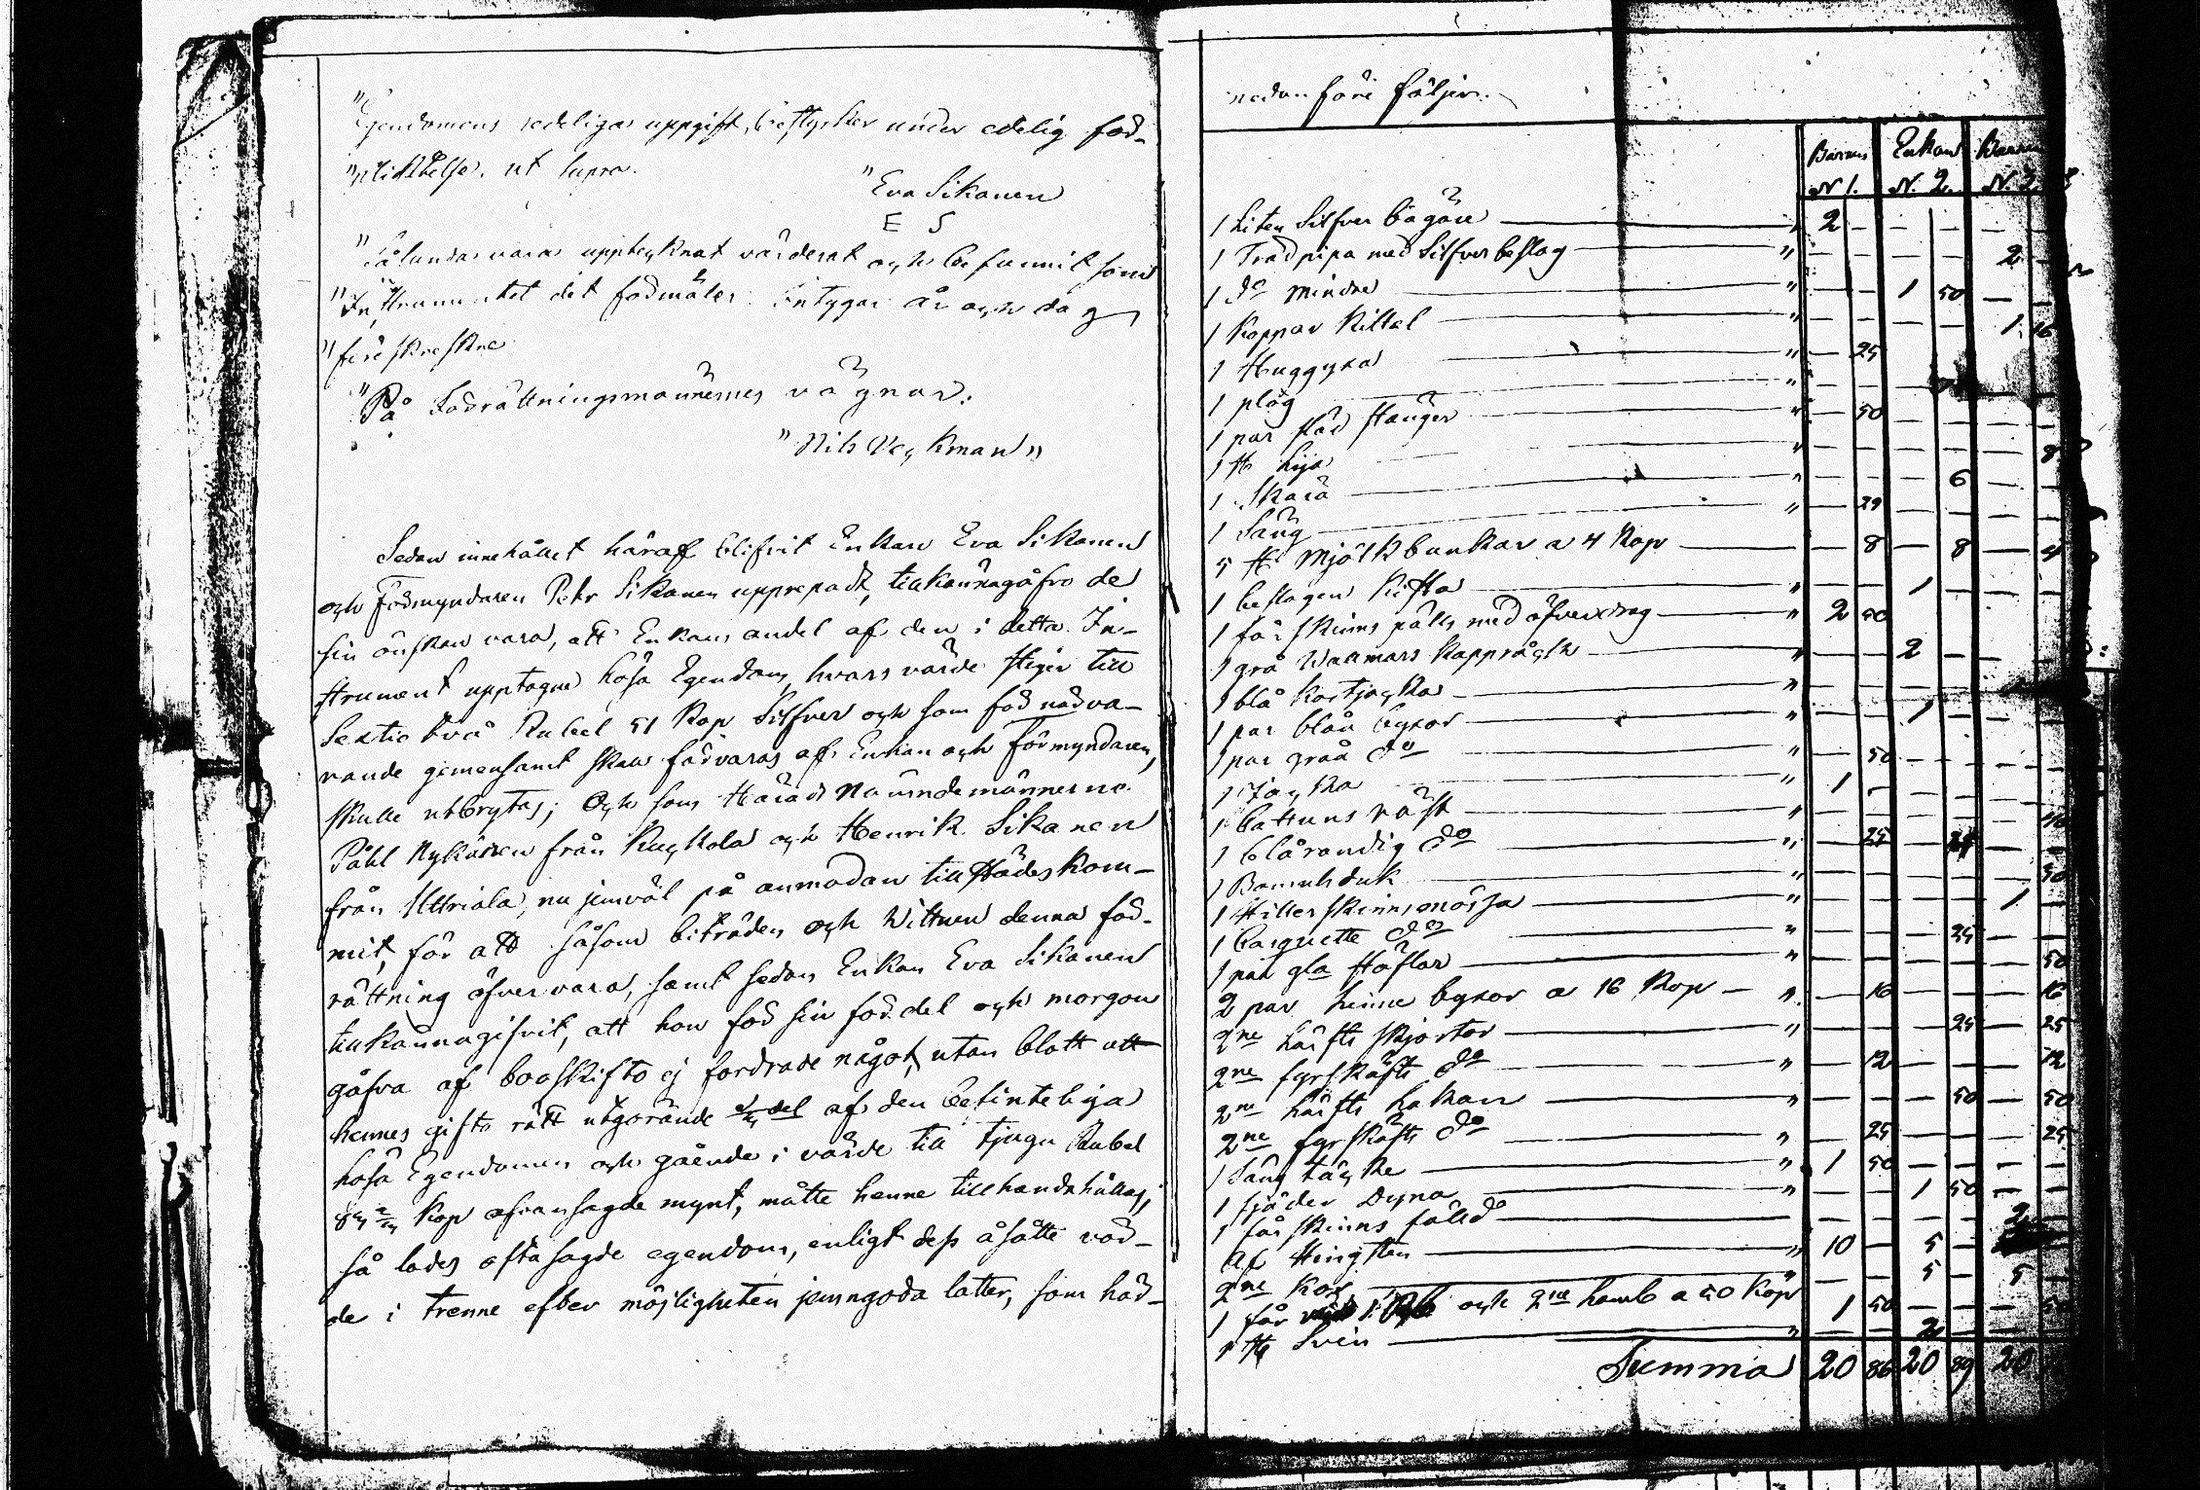 "Egendomens redeliga uppgift, bestyrker under edelig för-
"pliktelse. ut supra.
"Eva Sikanen
E S
"Sålunda vara uppteknat värderat och befunnit som
"Instrumentet det förmäler intygar år och dag
"föreskrefne
"På Förrättningsmännernes vägnar:
"Nils Veckman"
Sedan innehållet häraf blifvit Enkan Eva Sikanen
och Förmyndaren Petr Sikanen upprepadt, tillkännagåfvo de
sin önskan vara, att Enkans andel af den i detta In-
strument upptagne lösa Egendom, hvars värde stiger till
Sextio två Rubel 51 Kop Silfver och som för närva-
rande gemensamt skall förvaras af Enkan och Förmyndaren,
skulle utbrytas; Och som Härads Nämndemännerne
Påhl Nykänen från Kuckola och Henrik Sikanen
från Uttriala, nu jemväl på anmodan tillstädeskom-
mit, för att såsom biträden och Wittnen denna för-
rättning öfvervara, samt sedan Enkan Eva Sikanen
tillkännagifvit, att hon för sin fördel och morgon
gåfva af boskifto ej fordrade något, utan blott att
hennes gifto rätt utgörande del af den befinteliga
lösa Egendomen och gående i värde till tjugu Rubel
Kop ofvansagde mynt, måtte henne tillhandahållas;
så lades oftasagde egendom, enligt dess åsatte vär-
de i trenne efter möjligheten jemngoda lotter, som här-
nedanföre följer.
Barnens Enkans Barnens
N 1. N. 2. N. 3.
1 Liten Silfver bägare " 2 — — — — —
1 Tradpipa med Silfver beslag " — — — — 2 —
1 do mindre " — — 1 50 — —
1 Koppar Kittel " — — — — 1
1 Huggyxa " — 25
1 plog "
1 par stör stänger " — 50
1 St Lija " 8
1 Skära 6
1 Såg " — 29
5 St Mjölkbunkar a 4 Kop — 8 — 8 — 4
1 beslagen Kista " — — 1 —
1 fårskinns päls med öfverdrag " 2 50
1 grå Wallmars Kappråck " — — 2
1 blå Kortjacka "
1 par blåa byxor " — — 1 —
1 par gråa do " — 50
1 Jacka " 1 —
1 Cattuns väst "
1 blårandig do " — 25
1 Bomulsduk " 50
1 Hillerskinnsmössa " 1 —
1 Casquette do " 25
1 par gla Stöflar " 50
2 par linne byxor a 16 Kop " — 16 — — — 16
2ne lärfts skjortor " — — — 25 — 25
2ne fyrskäfts do " — 12 — — — 12
2ne lärfts Lakan " — — — 50 — 50
2ne fyrskäfts do " — 25 — — — 25
1 Säng täcke " 1 50 — — — —
1 fjäder Dyna " — — 1 50 — —
1 fårskinns fälld — — — — 2
Af Hingsten " 10 — 5 —
2ne Kor " — — 5 — 5 —
1 får och 2ne lamb a 50 Kop 1 50 — — — 50
1 St Svin " — — 2 —
Summa 20 86 20 89 20